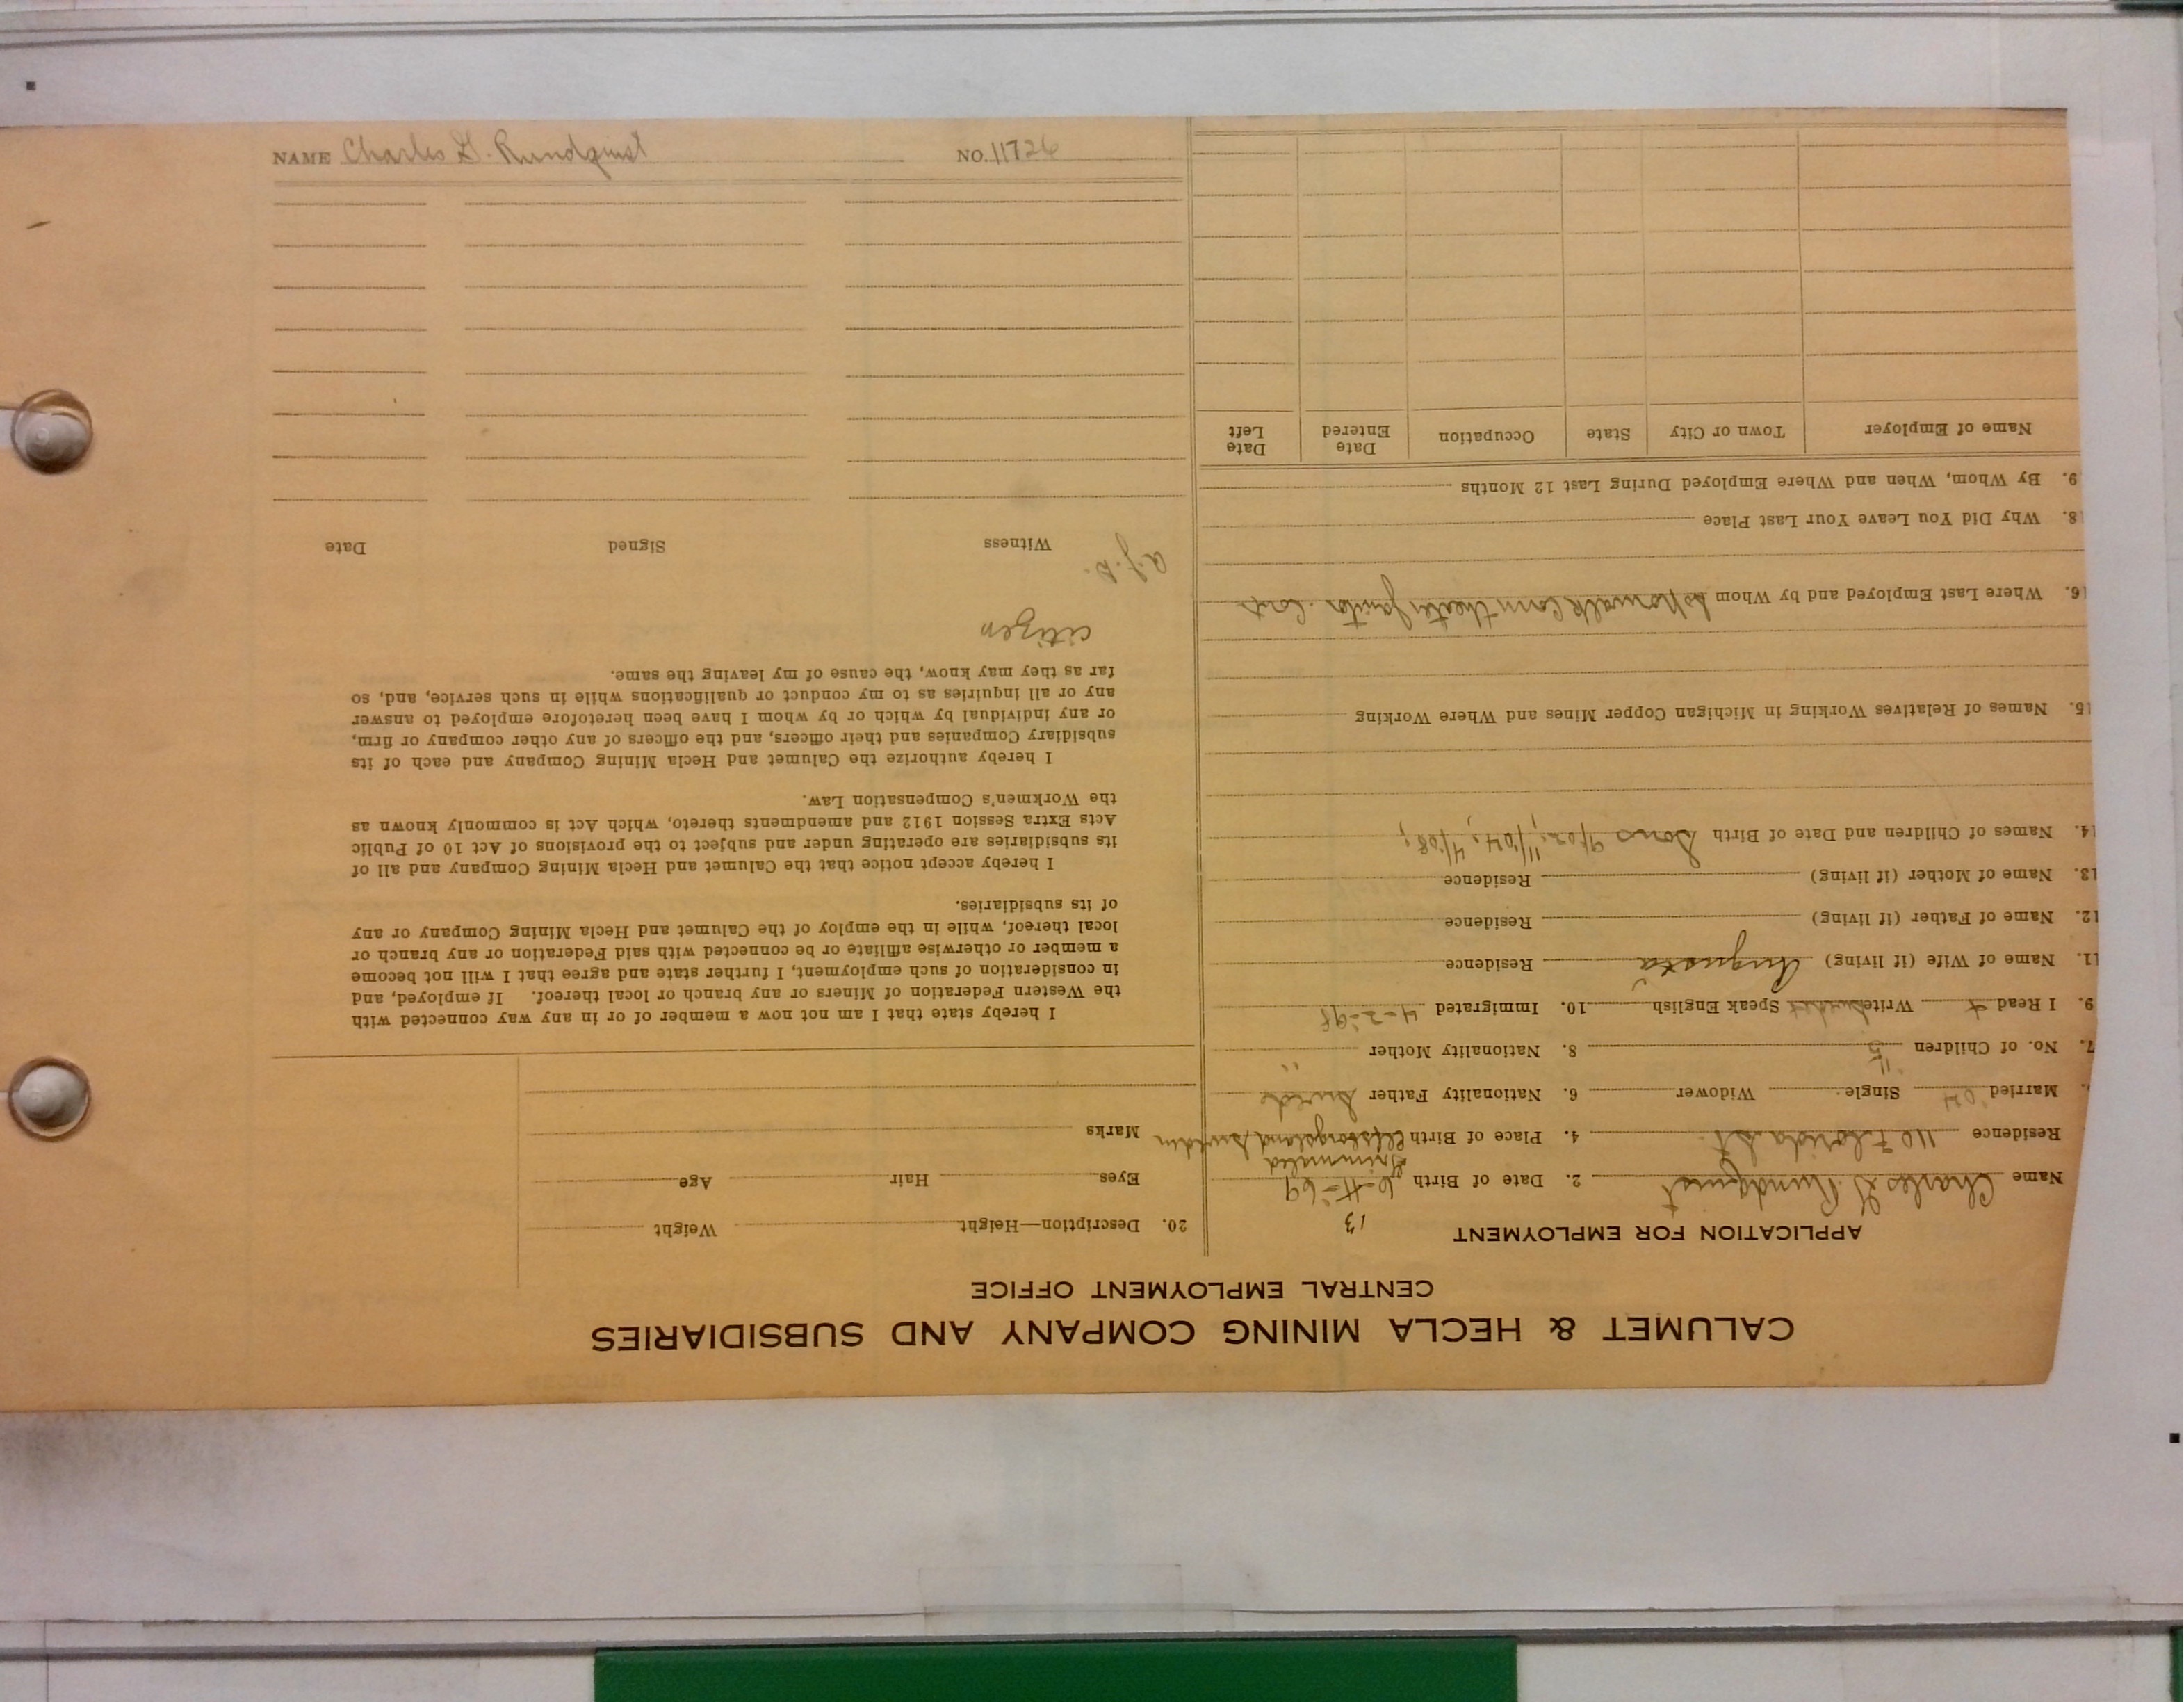 CALUMET & HECLA MINING COMPANY AND SUBSIDIARIES
CENTRAL EMPLOYMENT OFFICE
APPLICATION FOR EMPLOYMENT
Name Charles G. Rundquist 2. Date of Birth 6-4-69
13
Grimmared
Residence 110 Florida St. 4. Place of Birth Elfsborgsland, Sweden
Married '04 Single Widower 6. Nationality Father Swede
7. No. of Children 5 8. Nationality Mother "
9. I Read + Write Swedish Speak English 10. Immigrated 4-2-98
11. Name of Wife (if living) Augusta Residence
12. Name of Father (if living) Residence
13. Name of Mother (if living) Residence
14. Names of Children and Date of Birth Sons 9/02; 11/04; 4/08;
15. Names of Relatives Working in Michigan Copper Mines and Where Working
16. Where Last Employed and by Whom So Norwalk Conn theater janitor
18. Why Did You Leave Your Last Place
9. By Whom, When and Where Employed During Last 12 Months
Name of Employer Town or City State Occupation Date Entered Date Left
20. Description—Height Weight
Eyes Hair Age
Marks
I hereby state that I am not now a member of or in any way connected with
the Western Federation of Miners or any branch or local thereof. If employed, and
in consideration of such employment, I further state and agree that I will not become
a member or otherwise affiliate or be connected with said Federation or any branch or
local thereof, while in the employ of the Calumet and Hecla Mining Company or any
of its subsidiaries.
I hereby accept notice that the Calumet and Hecla Mining Company and all of
its subsidiaries are operating under and subject to the provisions of Act 10 of Public
Acts Extra Session 1912 and amendments thereto, which Act is commonly known as
the Workmen's Compensation Law.
I hereby authorize the Calumet and Hecla Mining Company and each of its
subsidiary Companies and their officers, and the officers of any other company or firm,
or any individual by which or by whom I have been heretofore employed to answer
any or all inquiries as to my conduct or qualifications while in such service, and, so
far as they may know, the cause of my leaving the same.
citizen
Witness Signed Date
NAME Charles G. Rundquist NO. 11726